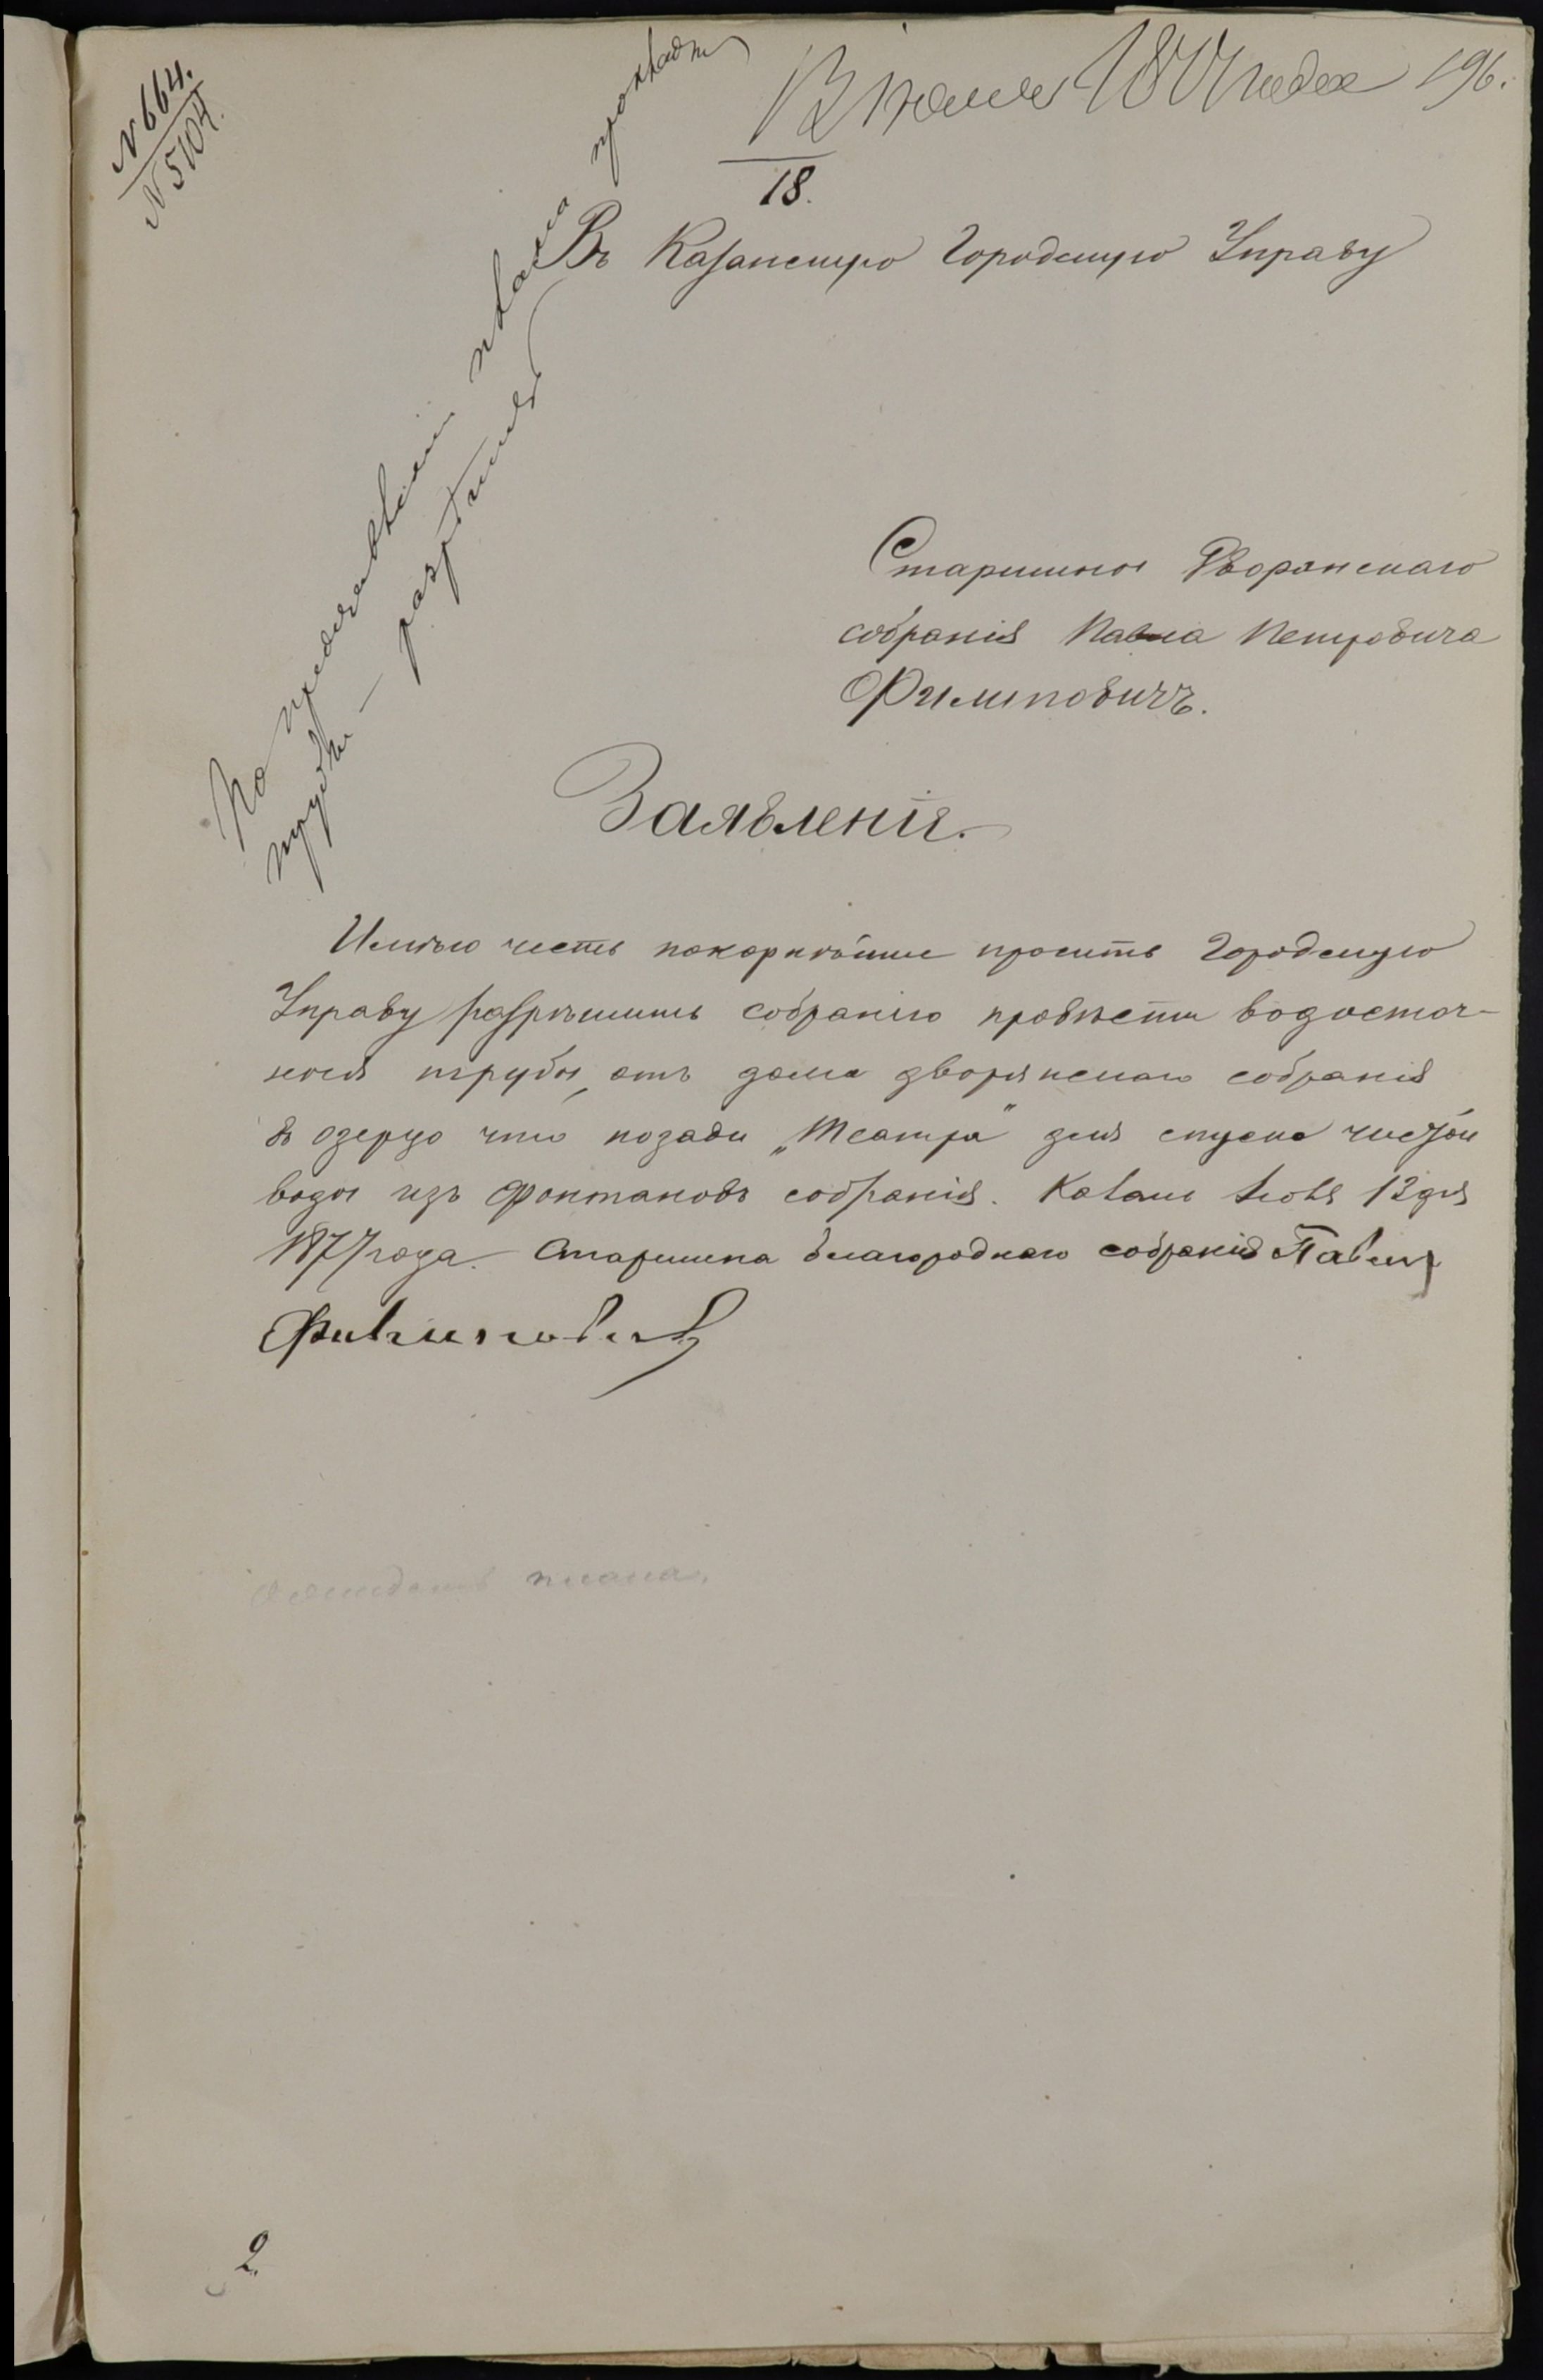 N 664.
N 5104.
12 июля 1877 года 196.
18.
По представленіи плана прокладки
трубы — разрѣшить
Въ Казанскую Городскую Управу
Старшины Дворянскаго
собранія Павла Петровича
Филиповичъ.
Заявленіе.
Имѣю честь покорнѣйше просить Городскую
Управу разрѣшить собранію провѣсти водосточ-
ныя трубы, отъ дома дворянскаго собранія
въ озерцо что позади „Театра" для спуска чистой
воды изъ фонтановъ собранія. Казань Іюля 12 дня
1877 года. Старшина благороднаго собранія Павелъ
Филиповичъ
плана.
2